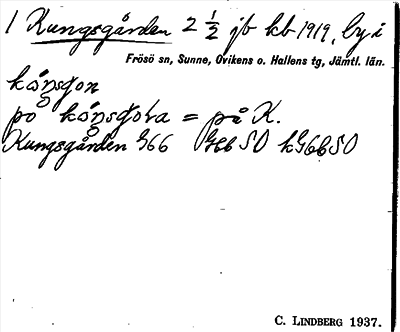 1 Kungsgården 2 ½ jb kb 1919, by i
Frösö sn, Sunne, Ovikens o. Hallens tg, Jämtl. län.
kóṇsgon
po kóṇsgo̊ra = på K.
Kungsgården G66 Gbb SO kGbbSO
C. LINDBERG 1937.